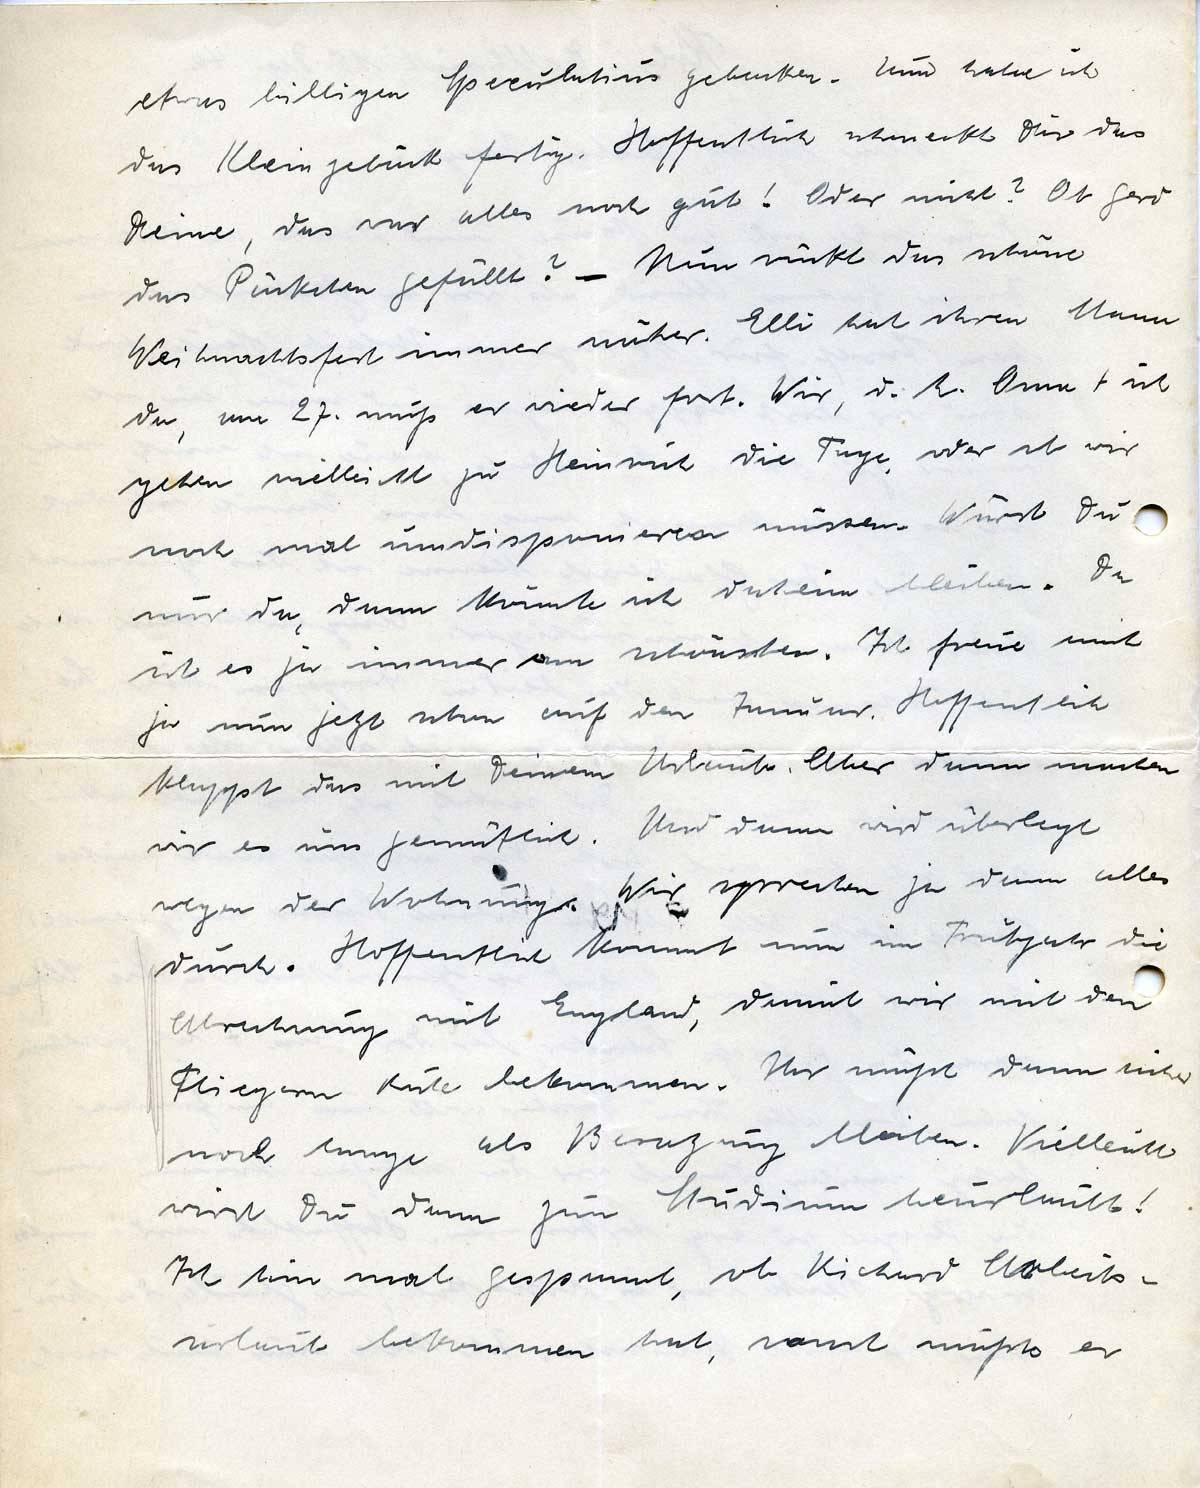 etwas billigen Spekulatius gebacken. Nun habe ich
das Kleingebäck fertig. Hoffentlich schmeckt Dir das
Deine, das war alles noch gut! Oder nicht? Ob Gerd
das Päckchen gefällt? – Nun rückt das schöne
Weihnachtsfest immer näher. Elli hat ihren Mann
da, am 27. muß er wieder fort. Wir, d. h. Oma + ich
gehen vielleicht zu Heinrich die Tage, oder ob wir
noch mal umdisponieren müssen. Wärst Du
nur da, dann könnte ich daheim bleiben. Da
ist es ja immer am schönsten. Ich freue mich
ja nun jetzt schon auf den Januar. Hoffentlich
klappt das mit Deinem Urlaub. Aber dann machen
wir es uns gemütlich. Und dann wird überlegt
wegen der Wohnung. Wir sprechen ja dann alles
durch. Hoffentlich kommt nun im Frühjahr die
Abrechnung mit England, damit wir mit den
Fliegern Ruhe bekommen. Ihr müßt dann sicher
noch lange als Besatzung bleiben. Vielleicht
wirst Du dann zum Studium beurlaubt!
Ich bin mal gespannt, ob Richard Arbeits-
urlaub bekommen hat, sonst müßte er